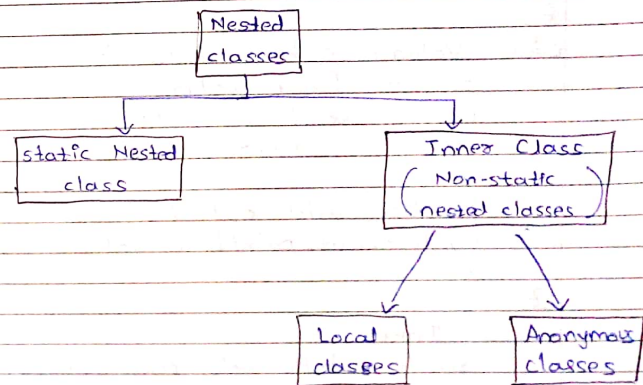 Nested
classes
static Nested
class
Inner Class
(Non-static
nested classes)
Local
classes
Anonymous
classes